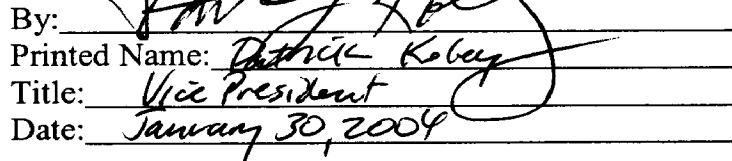 By:
Printed Name: Patrick
Title: Vice President
Date: January 30, 2004